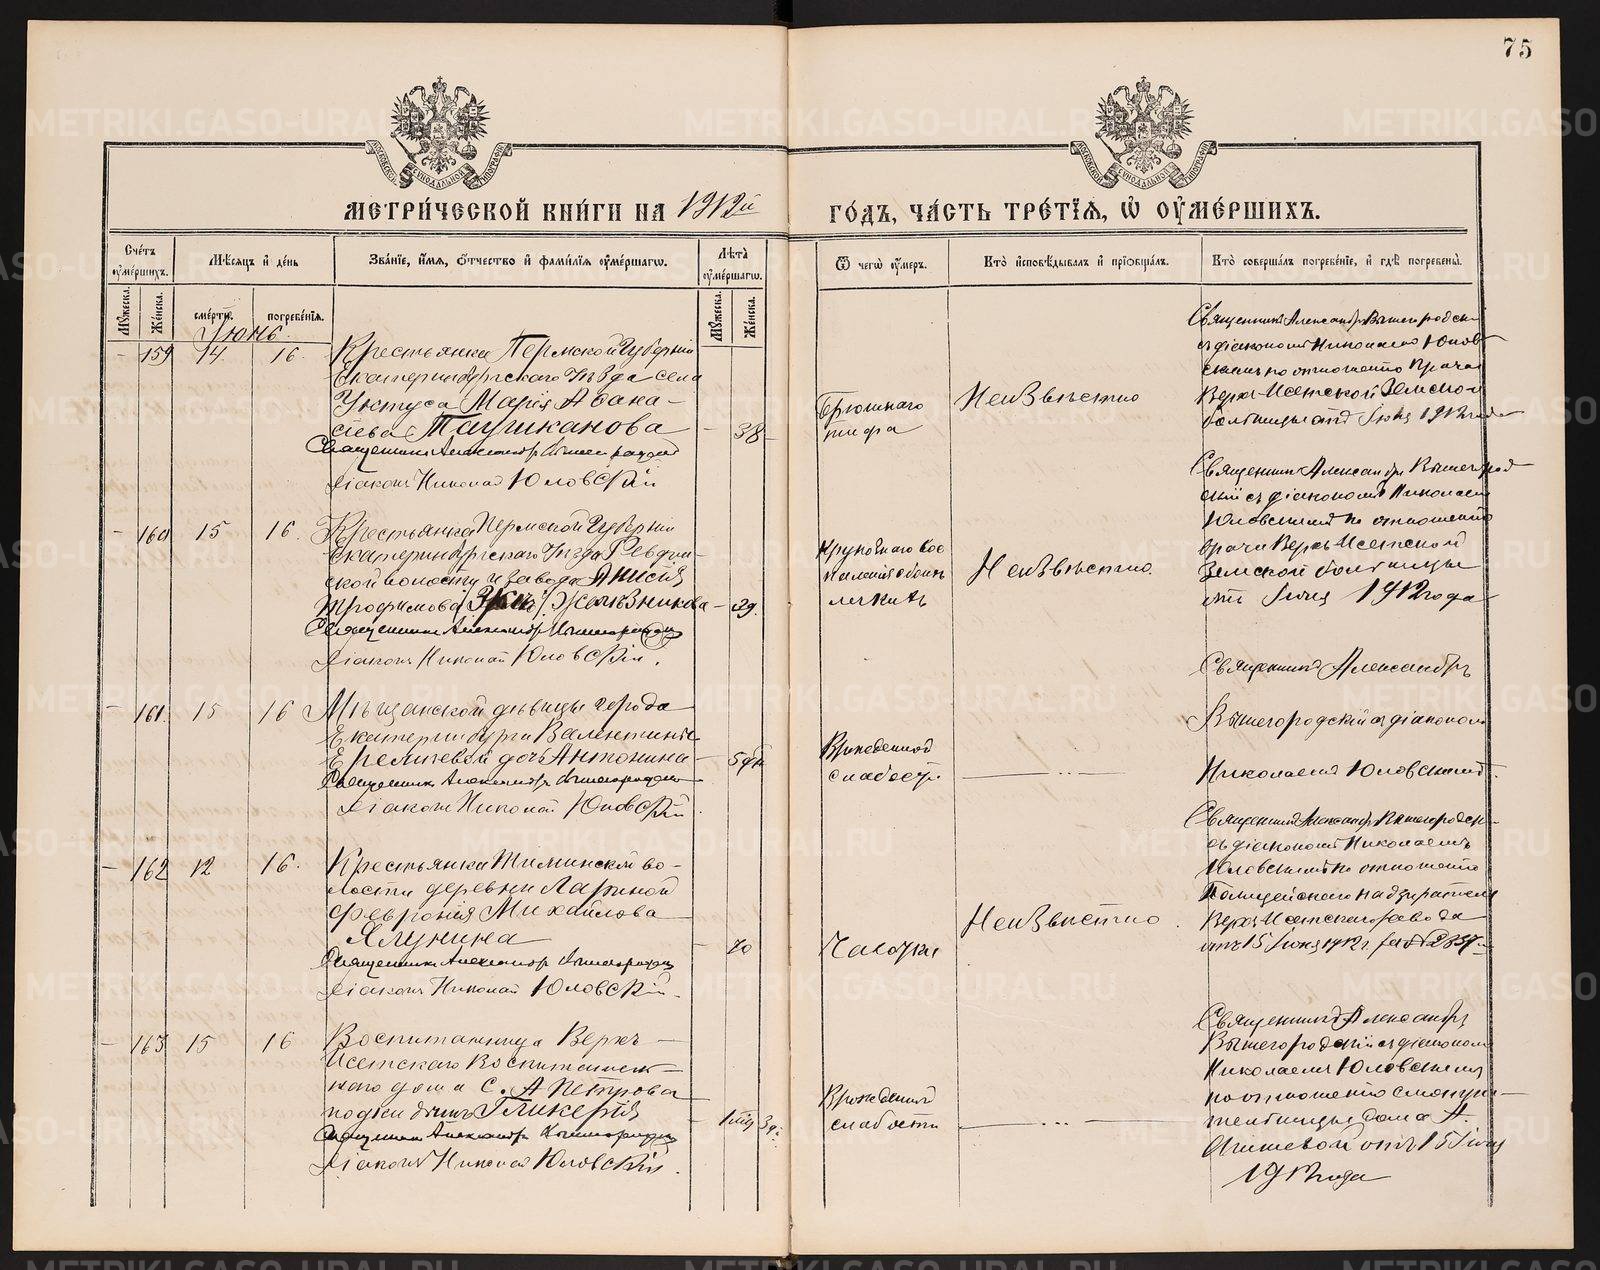 75
МОСКОВСКОЙ СУНОДАЛЬНОЙ ТИПОГРАФІИ
МОСКОВСКОЙ СУНОДАЛЬНОЙ ТИПОГРАФІИ
МЕТРИ́ЧЕСКОЙ КНИ́ГИ НА 1912й ГО́ДЪ, ЧА́СТЬ ТРЕ́ТЇѦ, Ѡ҆ ОУ҆МЕ́РШИХЪ.
Сче́тъ оу҆ме́ршихъ.
Мѣ́сѧцъ и҆ де́нь
Зва́нїе, и҆́мѧ, ѻ҆́тчество и҆ фами́лїѧ оу҆ме́ршагѡ.
Лѣ́та оу҆ме́ршагѡ.
Ѿ чегѡ̀ оу҆́меръ.
Кто̀ и҆сповѣ́дывалъ и҆ прїѻбща́лъ.
Кто̀ соверша́лъ погребе́нїе, и҆ гдѣ̀ погребены̀.
Мꙋ́жеска. Же́нска. сме́рти. погребе́нїѧ. Мꙋ́жеска. Же́нска.
Іюнь.
- 159 14 16. Крестьянка Пермской Губерніи
Екатеринбургскаго Уѣзда села
Уктуса Марія Авака-
сіева Таушканова - 38
Священникъ Александръ Вышегородскій
Діаконъ Николай Юловскій
Брюшнаго
тифа
Неизвѣстно
Священникъ Александръ Вышегородскі-
съ діакономъ Николаемъ Юлов-
скимъ по отношенію Врача
Верхъ-Исетской Земской
больницы отъ Іюня 1912 года
- 160 15 16. Крестьянка Пермской Губерніи
Екатеринбургскаго Уѣзда Ревдин-
ской волости и завода Анисія
Трофимова Желѣзникова - 39.
Священникъ Александръ Вышегородскій
Діаконъ Николай Юловскій.
Крупознаго вос
паленія обоихъ
легкихъ
Неизвѣстно.
Священникъ Александръ Вышегород-
скій съ діакономъ Николаемъ
Юловскимъ по отношенію
врача Верхъ-Исетской
Земской больницы
отъ Іюня 1912 года
- 161. 15 16 Мѣщанской дѣвицы города
Екатеринбурга Валентины
дочь Антонина - 5 дн
Священникъ Александръ Вышегородскій
Діаконъ Николай Юловскій.
Врожденной
слабости
Священникъ Александръ
Вышегородскій съ діакономъ
Николаемъ Юловскимъ.
- 162 12 16. Крестьянка во-
лости деревни Лариной
Февронія Михайлова
Ялунина - 70
Священникъ Александръ Вышегородскій
Діаконъ Николай Юловскій.
Чахотки
Неизвѣстно.
Священникъ Александръ Вышегородскі-
съ діакономъ Николаемъ
Юловскимъ по отношенію
Полицейскаго надзирателя
Верхъ-Исетскаго завода
отъ 15 Іюня 1912 г. за № 2357
- 163 15 16 Воспитанница Верхъ-
Исетскаго Воспитатель-
наго дома С. А Петрова
подкидышъ Гликерія - 1 м 3 д.
Священникъ Александръ Вышегородскій
Діаконъ Николай Юловскій.
Врожденной
слабости
Священникъ Александръ
Вышегородскій съ діакономъ
Николаемъ Юловскимъ
по отношенію смотри-
тельницы дома А.
отъ 15 Іюня
1912 года
METRIKI.GASO-URAL.RU